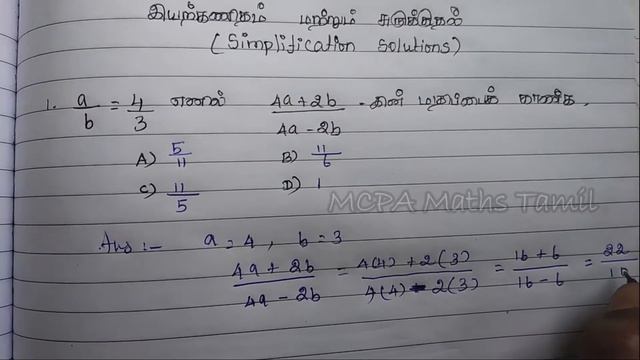 இயற்கணிதம் மற்றும் சுருக்குதல்
(Simplification Solutions)
1. a/b = 4/3 எனில் (4a + 2b)/(4a - 2b) - தன் மதிப்பைக் காண்க.
A) 5/11 B) 11/6
C) 11/5 D) 1
MCPA Maths Tamil
Ans :- a = 4, b = 3
(4a + 2b)/(4a - 2b) = (4(4) + 2(3))/(4(4) - 2(3)) = (16 + 6)/(16 - 6) = 22/10